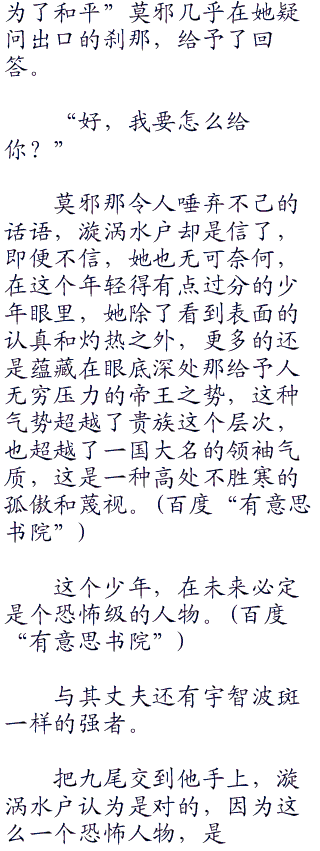 为了和平”莫邪几乎在她疑
问出口的刹那，给予了回
答。
“好，我要怎么给
你？”
莫邪那令人唾弃不己的
话语，漩涡水户却是信了，
即便不信，她也无可奈何，
在这个年轻得有点过分的少
年眼里，她除了看到表面的
认真和灼热之外，更多的还
是蕴藏在眼底深处那给予人
无穷压力的帝王之势，这种
气势超越了贵族这个层次，
也超越了一国大名的领袖气
质，这是一种高处不胜寒的
孤傲和蔑视。（百度“有意思
书院”）
这个少年，在未来必定
是个恐怖级的人物。（百度
“有意思书院”）
与其丈夫还有宇智波斑
一样的强者。
把九尾交到他手上，漩
涡水户认为是对的，因为这
么一个恐怖人物，是